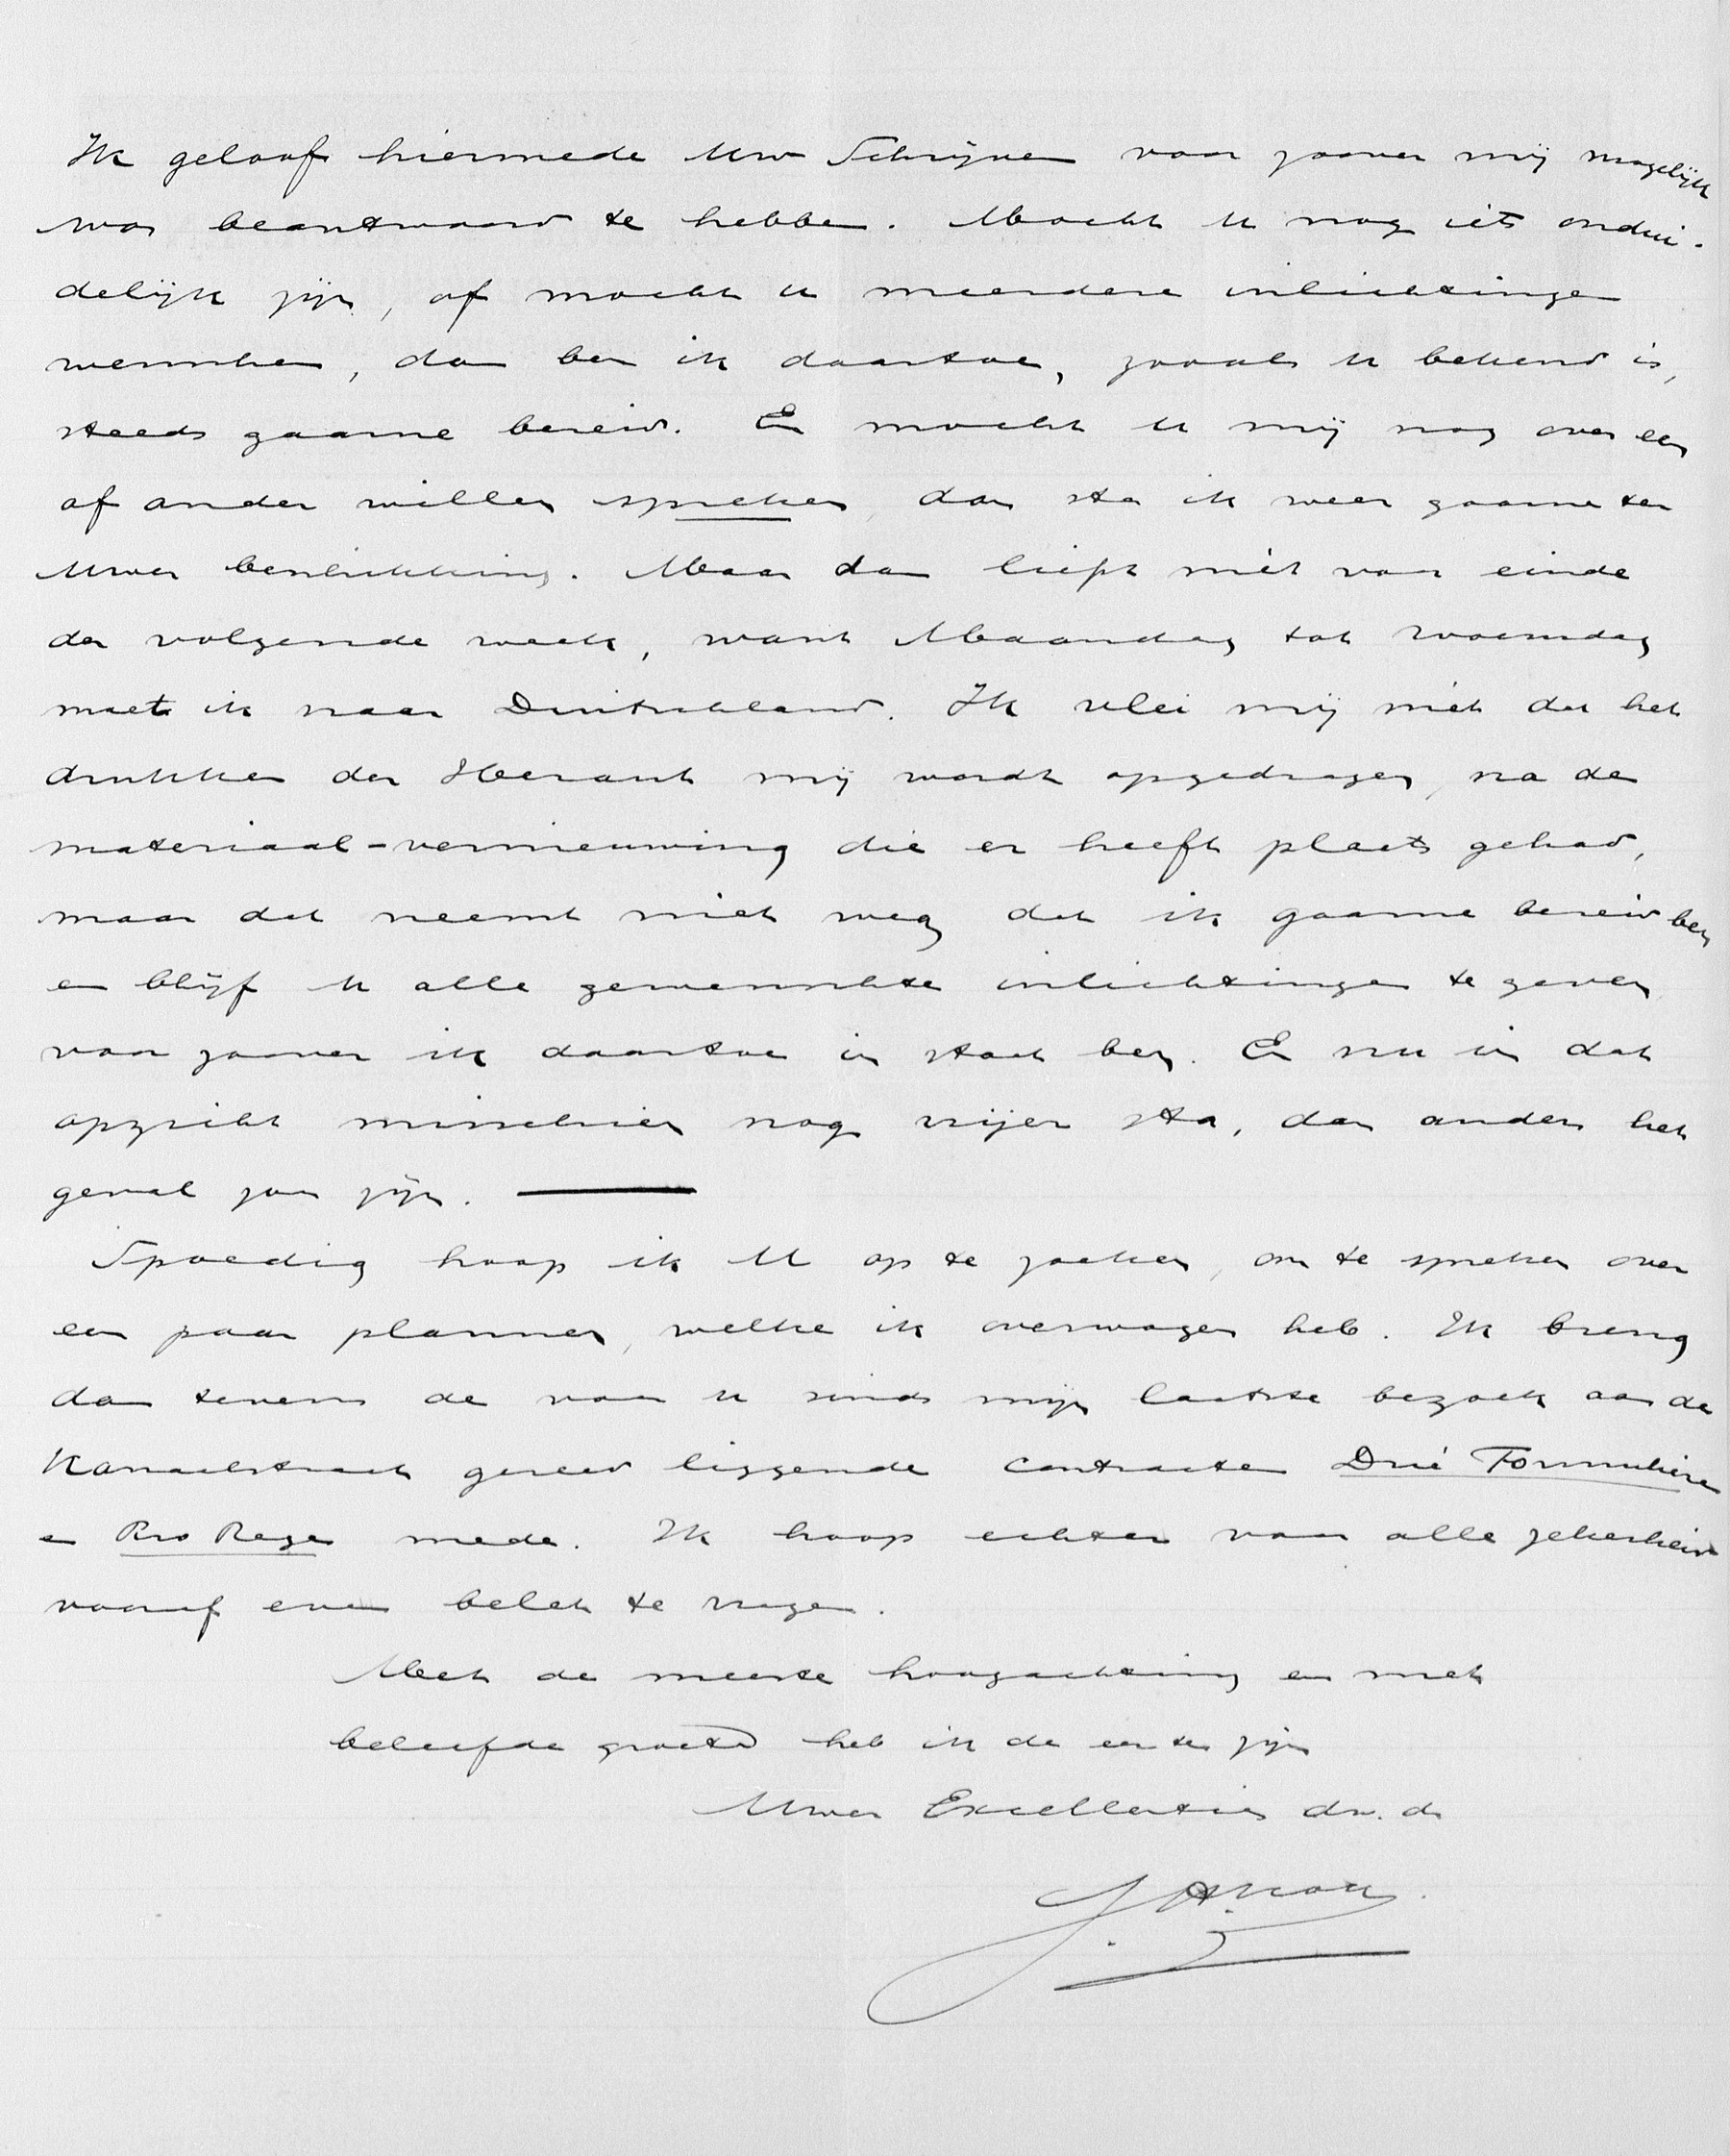 Ik geloof hiermede Uw Schrijven voor zoover mij mogelijk
was beantwoord te hebben. Mocht U nog iets ondui-
delijk zijn, of mocht U meerdere inlichtingen
wenschen, dan ben ik daartoe, zooals U bekend is,
steeds gaarne bereid. En mocht U mij nog over een
of ander willen spreken, dan sta ik weer gaarne ter
Uwer beschikking. Maar dan liefst niet voor einde
der volgende week, want Maandag tot Woensdag
moet ik naar Duitschland. Ik vlei mij niet dat het
drukken der Heraut mij wordt opgedragen, na de
materiaal-vernieuwing die er heeft plaats gehad,
maar dat neemt niet weg dat ik gaarne bereid ben
en blijf U alle gewenschte inlichtingen te geven
voor zoover ik daartoe in staat ben. En nu in dat
opzicht misschien nog vrijer sta, dan anders het
geval zou zijn. ———
Spoedig hoop ik U op te zoeken, om te spreken over
een paar plannen, welke ik overwogen heb. Ik breng
dan tevens de voor U sinds mijn laatste bezoek aan de
Kanaalstraat gereed liggende contracten Drie Formulieren
en Pro Rege mede. Ik hoop echter voor alle zekerheid
vooraf even belet te vragen.
Met de meeste hoogachting en met
beleefde groete heb ik de eer te zijn
Uwer Excellenties dw. dr
J. A. Kok